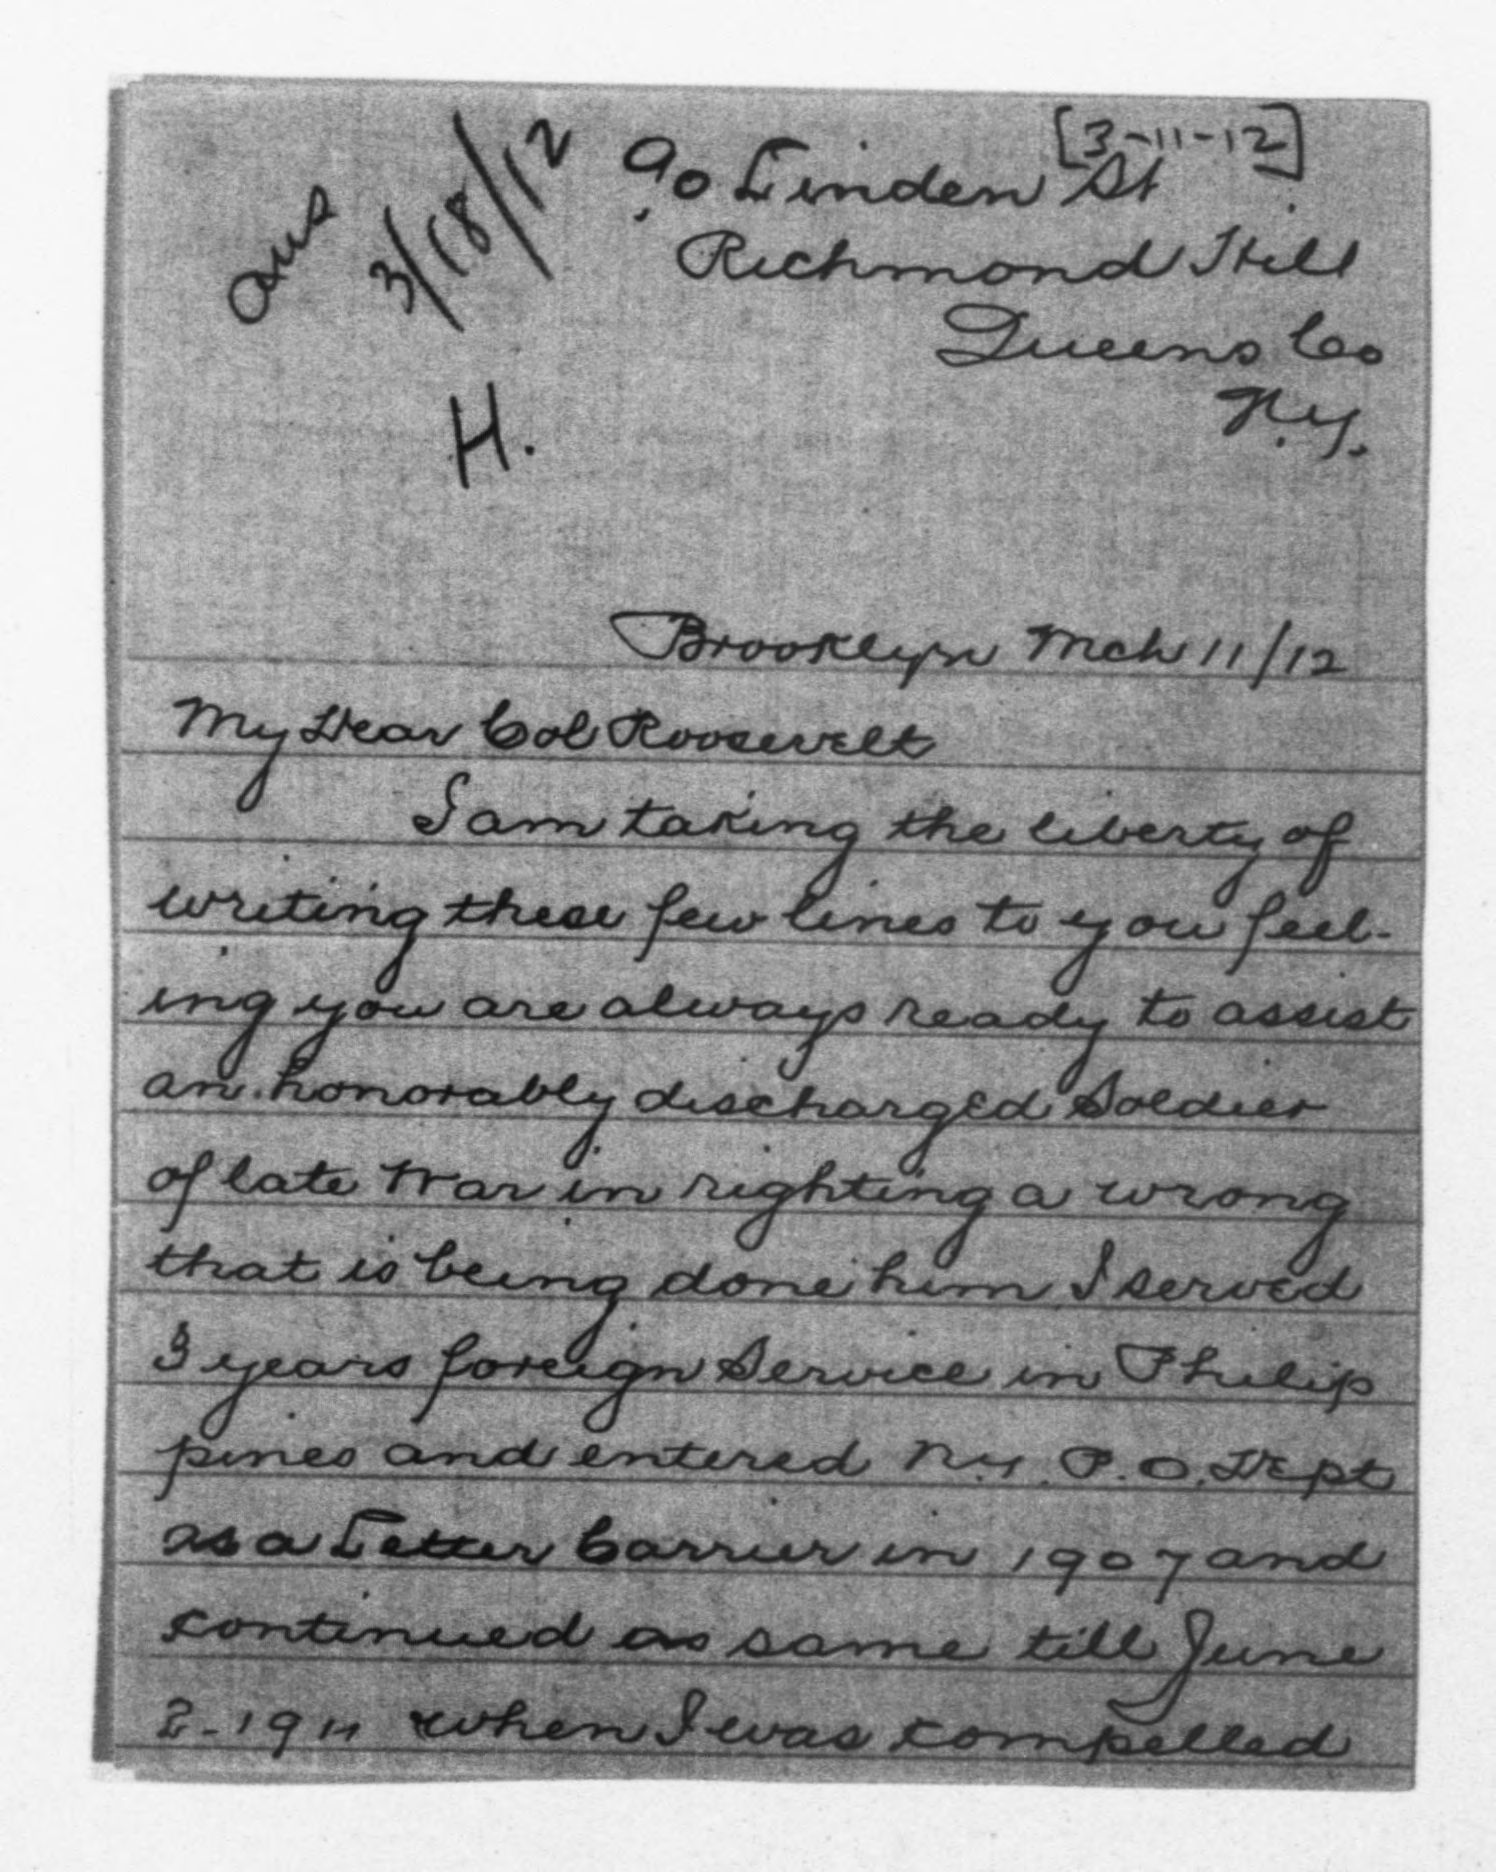 [3-11-12]
ans 3/18/12
90 Linden St
Richmond Hill
Queens Co
N.Y.
H.
Brooklyn Mch 11/12
My Dear Col Roosevelt
I am taking the liberty of
writing these few lines to you feel-
ing you are always ready to assist
an honorably discharged Soldier
of late War in righting a wrong
that is being done him I served
3 years foreign Service in Philip
pines and entered N.Y. P.O. Dept
as a Letter Carrier in 1907 and
continued as same till June
2-1911 when I was compelled